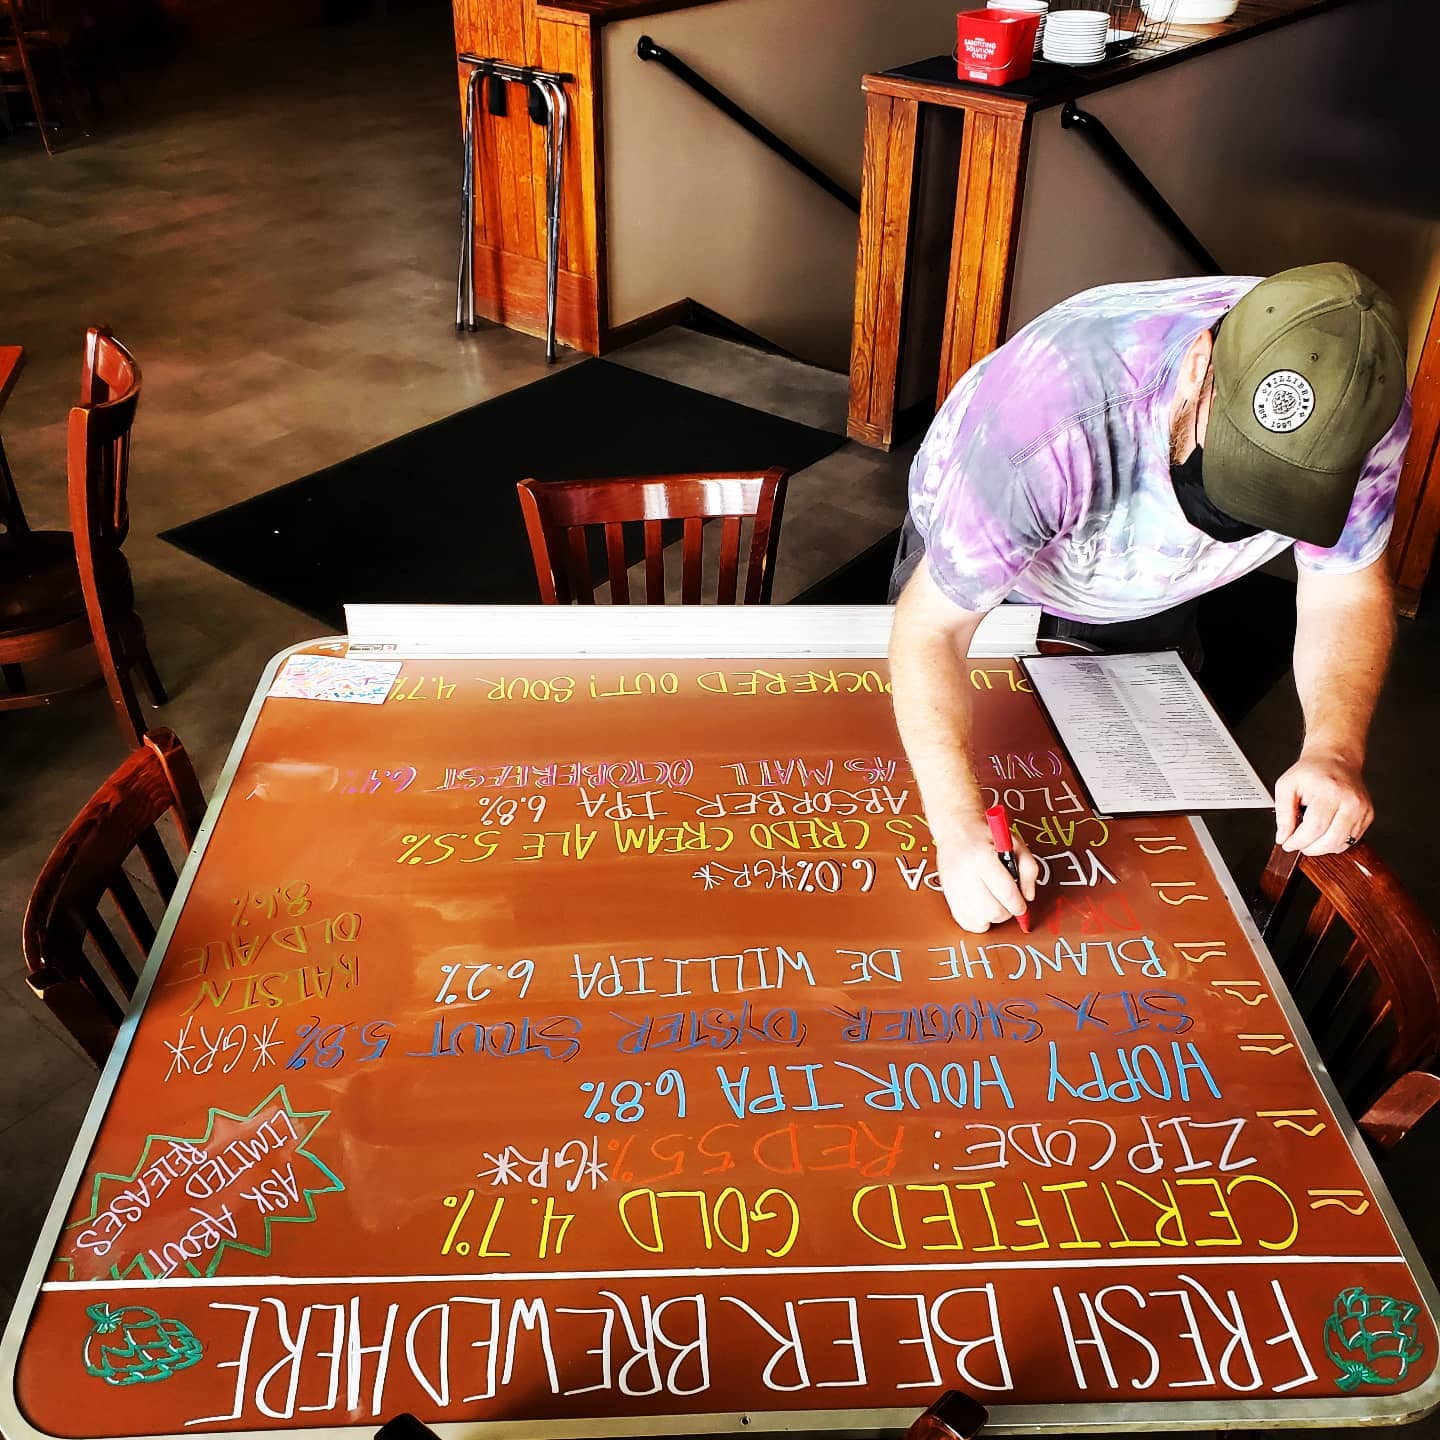 FRESH BEER BREWED HERE
CERTIFIED GOLD 4.7%
ZIPCODE: RED 5.5% *GR*
HOPPY HOUR IPA 6.8%
SIX SHOOTER OYSTER STOUT 5.8% *GR*
BLANCHE DE WILLI IPA 6.2%
DRA
VEG PA 6.0% *GR*
CAR 'S CREDO CREAM ALE 5.5%
FLO ABSORBER IPA 6.8%
OVE EAS MALL OCTOBERFEST 6.4%
PLU PUCKERED OUT! SOUR 4.7%
ASK ABOUT
LIMITED
RELEASES
RAISIN
OLD ALE
8.6%
SANITIZING
SOLUTION
ONLY
WILLIBREW
EST. 1997